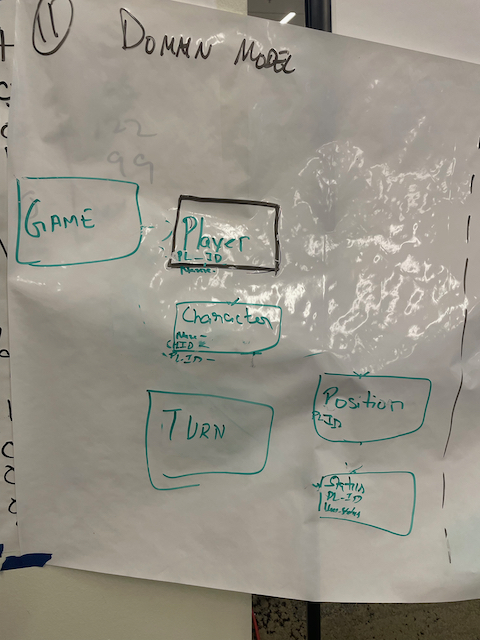 11 DOMAIN MODEL
22
99
GAME
Player
PL-ID
Name-
Character
Name-
CHID
PL-ID -
TURN
Position
PLID
Status
PL-ID
User.status